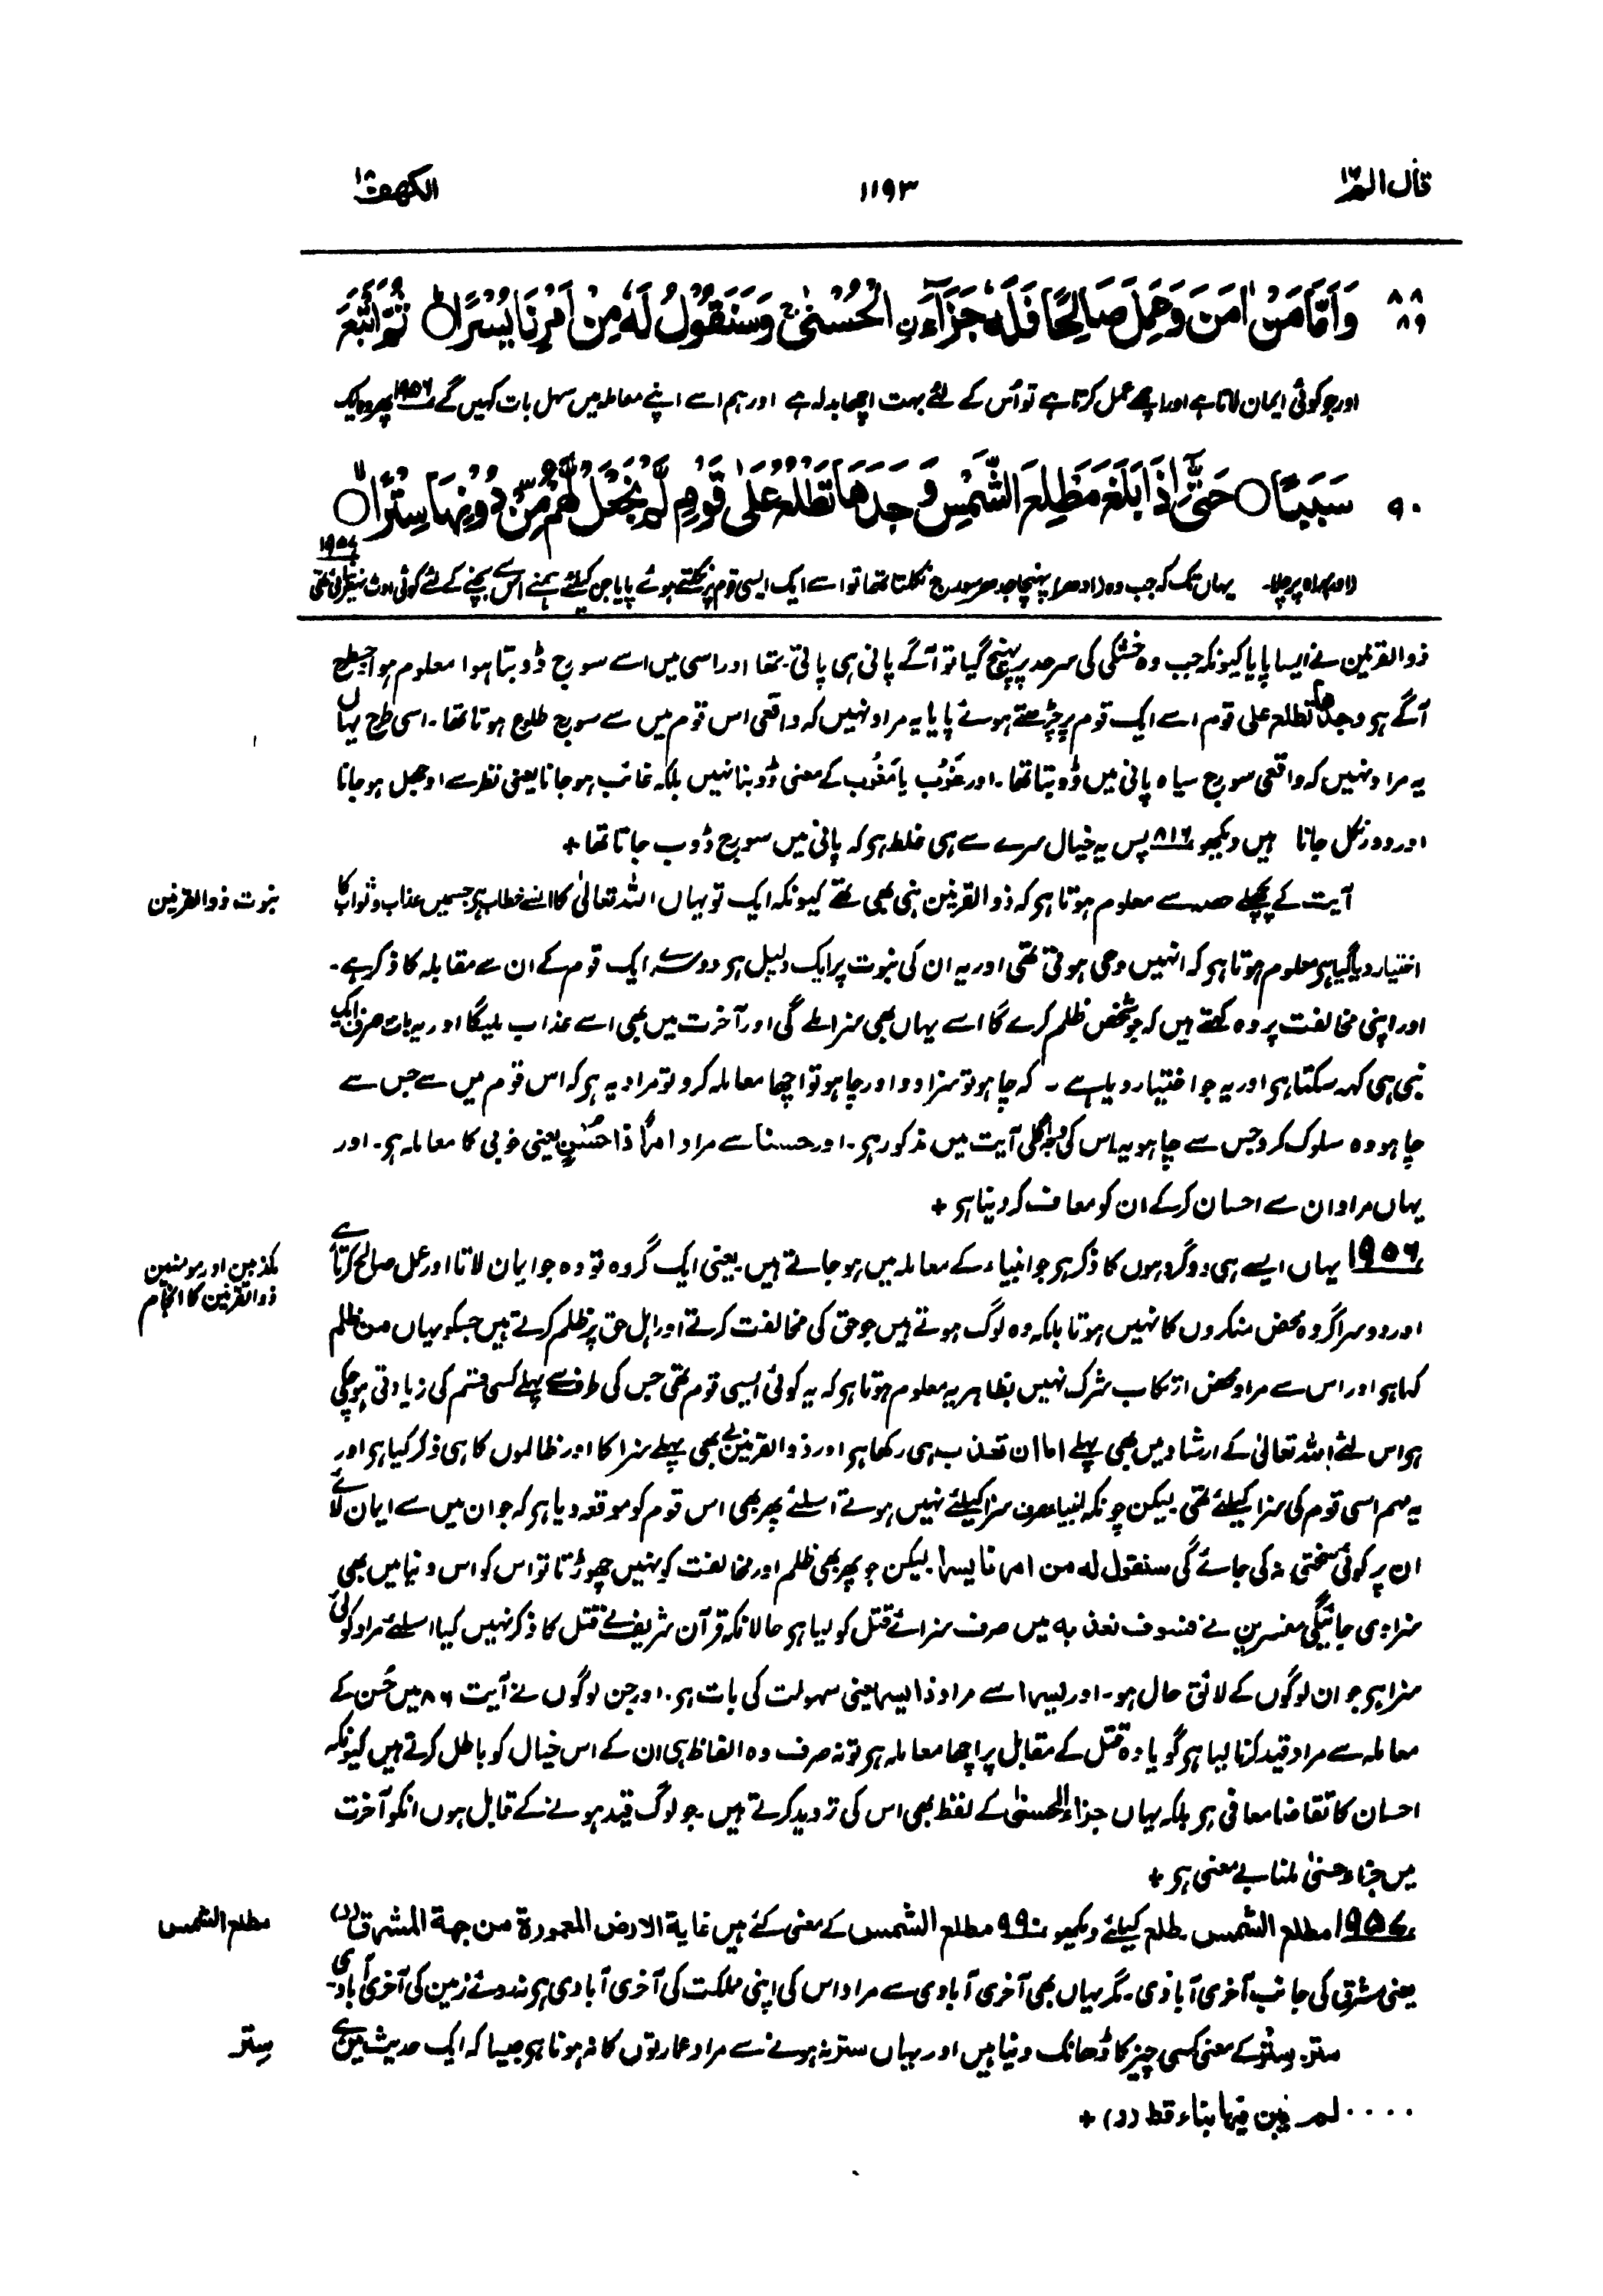 قال الم ١٦
١١٩٣
الکھف ١٨
٨٨ وَاَمَّا مَنْ اٰمَنَ وَعَمِلَ صَالِحًا فَلَهٗ جَزَآءَ نِ الْحُسْنٰی ۚ وَسَنَقُوْلُ لَهٗ مِنْ اَمْرِنَا یُسْرًا ۝ ثُمَّ اَتْبَعَ
٨٩
اور جو کوئی ایمان لاتا ہے اور اچھے عمل کرتا ہے تو اُس کے لئے بہت اچھا بدلہ ہے اور ہم اسے اپنے معاملہ میں سہل بات کہیں گے ١٩٥٦ پھر وہ ایک
٩٠ سَبَبًا ۝ حَتّٰۤی اِذَا بَلَغَ مَطْلِعَ الشَّمْسِ وَجَدَهَا تَطْلُعُ عَلٰی قَوْمٍ لَّمْ نَجْعَلْ لَّهُمْ مِّنْ دُوْنِهَا سِتْرًا ۝
(اور) راہ پر چلا۔ یہاں تک کہ جب وہ (ادھر) پہنچا جدھر سورج نکلتا تھا تو اسے ایک ایسی قوم پر نکلتے ہوئے پایا جن کیلئے ہمنے اُس سے بچنے کے لئے کوئی اوٹ نہیں بنائی تھی ١٩٥٧
ذوالقرنین نے ایسا پایا کیونکہ جب وہ خشکی کی سرحد پر پہنچ گیا تو آگے پانی ہی پانی تھا اور اسی میں اسے سورج ڈوبتا ہوا معلوم ہوا جسطرح
آگے ہی وجدھا تطلع علی قوم اسے ایک قوم پر چڑھتے ہوئے پایا یہ مراد نہیں کہ واقعی اس قوم میں سے سورج طلوع ہوتا تھا۔ اسی طرح یہاں
یہ مراد نہیں کہ واقعی سورج سیاہ پانی میں ڈوبتا تھا۔ اور غُرُوب یا مَغرُب کے معنی ڈوبنا نہیں بلکہ غائب ہو جانا یعنی نظر سے اوجھل ہو جانا
اور دور نکل جانا ہیں دیکھو ٨١٦ پس یہ خیال سرے سے ہی غلط ہی کہ پانی میں سورج ڈوب جاتا تھا +
نبوت ذوالقرنین
آیت کے پچھلے حصہ سے معلوم ہوتا ہی کہ ذوالقرنین نبی بھی تھے کیونکہ ایک تو یہاں اللہ تعالیٰ کا اسے خطاب ہی جسمیں عذاب و ثواب کا
اختیار دیا گیا ہی معلوم ہوتا ہی کہ انہیں وحی ہوتی تھی اور یہ ان کی نبوت پر ایک دلیل ہی دوسرے ایک قوم کے ان سے مقابلہ کا ذکر ہے۔
اور اپنی مخالفت پر وہ کہتے ہیں کہ جو شخص ظلم کرے گا اسے یہاں بھی سزا ملے گی اور آخرت میں بھی اسے عذاب ملیگا اور یہ بات صرف ایک
نبی ہی کہہ سکتا ہی اور یہ جو اختیار دیا ہے ۔ کہ چاہو تو سزا دو اور چاہو تو اچھا معاملہ کرو تو مراد یہ ہی کہ اس قوم میں سے جس سے
چاہو وہ سلوک کرو جس سے چاہو یہ۔ اس کی وجہ اگلی آیت میں مذکور ہی۔ اور حسنا سے مراد امراً ذا حُسْنٍ یعنی خوبی کا معاملہ ہی۔ اور
یہاں مراد ان سے احسان کر کے ان کو معاف کر دینا ہی +
مکذبین اور مومنین
ذوالقرنین کا انجام
١٩٥٦ یہاں ایسے ہی دو گروہوں کا ذکر ہی جو انبیاء کے معاملہ میں ہو جاتے ہیں یعنی ایک گروہ تو وہ جو ایمان لاتا اور عمل صالح کرتا ہے
اور دوسرا گروہ محض منکروں کا نہیں ہوتا بلکہ وہ لوگ ہوتے ہیں جو حق کی مخالفت کرتے اور اہل حق پر ظلم کرتے ہیں جسکو یہاں من ظلم
کہا ہی اور اس سے مراد محض ارتکاب شرک نہیں بظاہر یہ معلوم ہوتا ہی کہ یہ کوئی ایسی قوم تھی جس کی طرف سے پہلے کسی قسم کی زیادتی ہو چکی
ہی اس لئے اللہ تعالیٰ کے ارشاد میں بھی پہلے اما ان تعذب ہی رکھا ہی اور ذوالقرنین نے بھی پہلے سزا کا اور ظالموں کا ہی ذکر کیا ہی اور
یہ مہم اسی قوم کی سزا کیلئے تھی لیکن چونکہ انبیاء صرف سزا کیلئے نہیں ہوتے اسلئے پھر بھی اس قوم کو موقعہ دیا ہی کہ جو ان میں سے ایمان لائے
ان پر کوئی سختی نہ کی جائے گی سنقول لہ من امرنا یسرا۔ لیکن جو پھر بھی ظلم اور مخالفت کو نہیں چھوڑتا تو اس کو اس دنیا میں بھی
سزا دی جائیگی مفسرین نے فسوف نعذبہ میں صرف سزائے قتل کو لیا ہی حالانکہ قرآن شریف نے قتل کا ذکر نہیں کیا اسلئے مراد کوئی
سزا ہی جو ان لوگوں کے لائق حال ہو۔ اور یسرا سے مراد ذا یسر یعنی سہولت کی بات ہی۔ اور جن لوگوں نے آیت ٨٦ میں حُسن کے
معاملہ سے مراد قید کرنا لیا ہی گویا وہ قتل کے مقابل پر اچھا معاملہ ہی تو نہ صرف وہ الفاظ ہی ان کے اس خیال کو باطل کرتے ہیں کیونکہ
احسان کا تقاضا معافی ہی بلکہ یہاں جزاء الحسنیٰ کے لفظ بھی اس کی تردید کرتے ہیں۔ جو لوگ قید ہونے کے قابل ہوں انکو آخرت
میں جزاء حسنیٰ ملنا بے معنی ہی +
مطلع الشمس
١٩٥٧ مطلع الشمس۔ طلع کیلئے دیکھو ٩٩ مطلع الشمس کے معنی کئے ہیں غایۃ الارض المعمورۃ من جھۃ المشرق (ر)
یعنی مشرق کی جانب آخری آبادی۔ مگر یہاں بھی آخری آبادی سے مراد اس کی اپنی مملکت کی آخری آبادی ہی نہ روئے زمین کی آخری آبادی۔
سِتر
ستر۔ سِتر کے معنی کسی چیز کا ڈھانک دینا ہیں اور یہاں ستر نہ ہونے سے مراد عمارتوں کا نہ ہونا ہی جیسا کہ ایک حدیث میں ہے
.... لم یبن فیھا بناء قط (ر) +